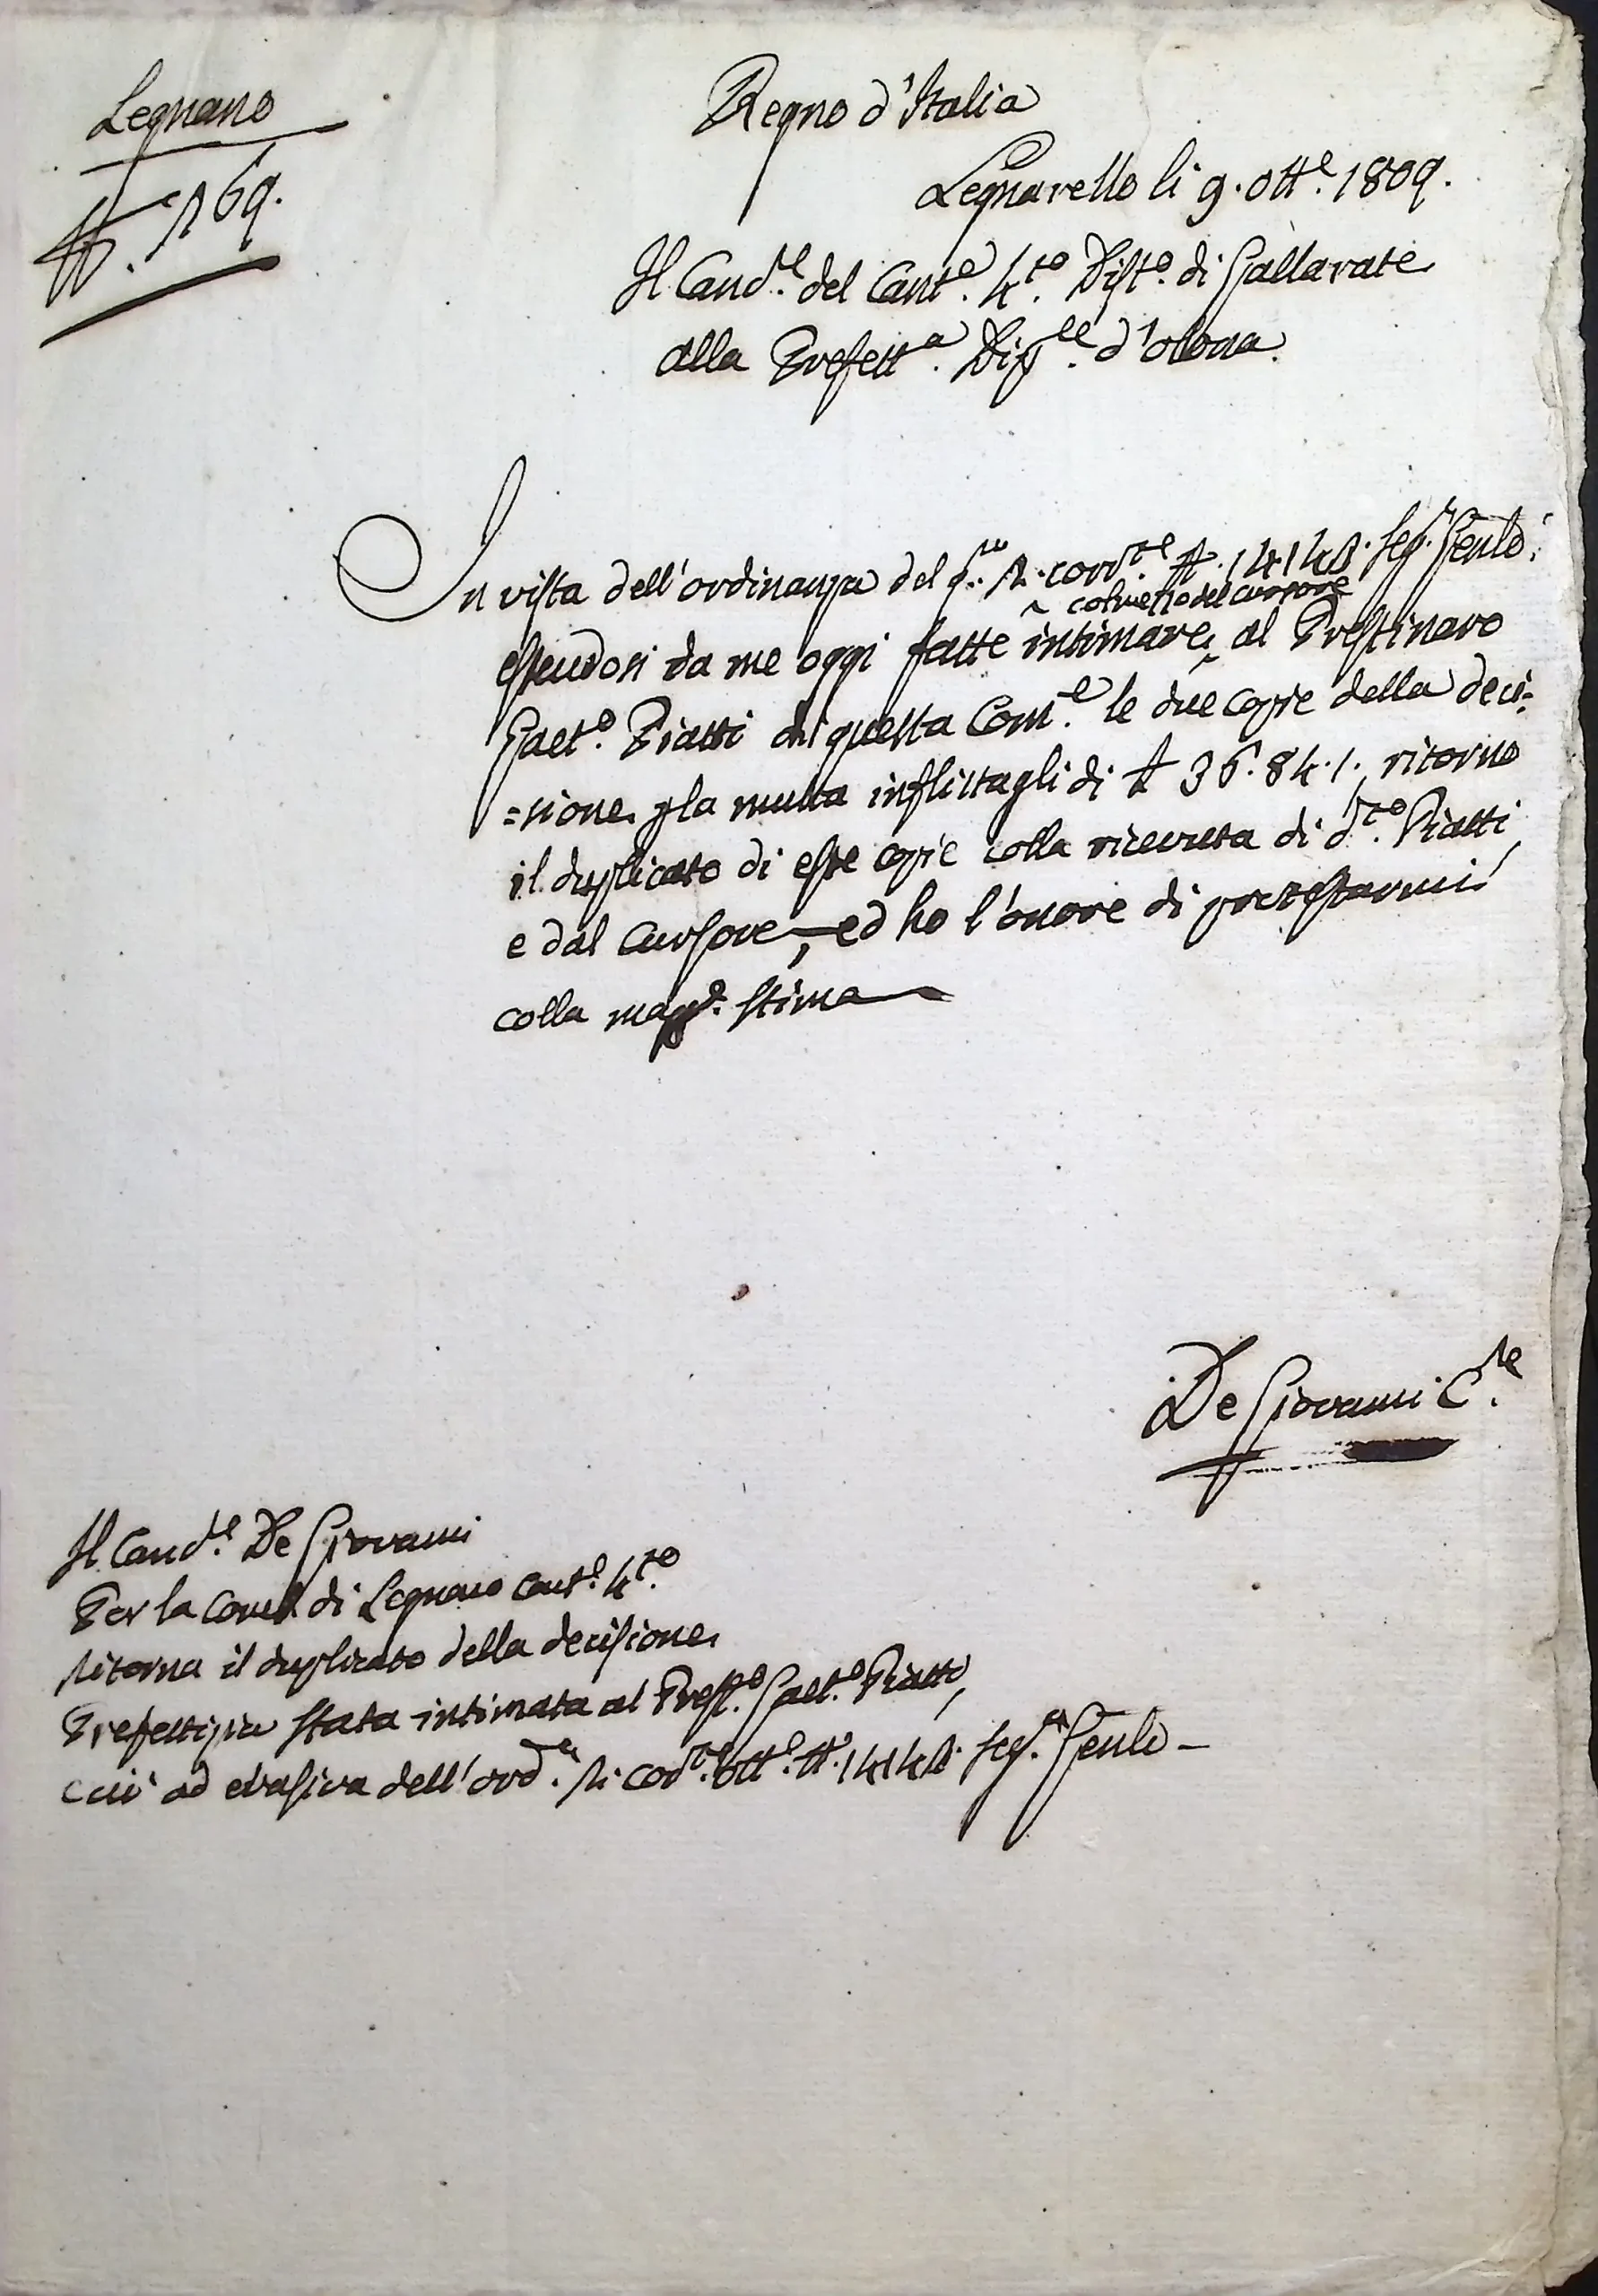 Legnano
N. 169.
Regno d'Italia
Legnarello li 9. ott.e 1809.
Il Canc.e del Cant.e 4.to Dist.o di Gallarate
alla Prefett.a Dip.le d'olona.
In vista dell'ordinanza del g.no corr.te N. Sez.
col mezzo del cursore
essendosi da me oggi fatte intimare, al Prestinaro
Gaet.o Piatti di questa Com.e le due copie della deci=
=sione p la multa inflittagli di 36.84.1., ritorno
il duplicato di esse copie colla ricevuta di d.to Piatti,
e dal Cursore, ed ho l'onore di protestarmi
colla magg.e stima
De Giovanni C.re
Il Canc.e De Giovanni
Per la Com.e di Legnano Cant.e 4.to
ritorna il duplicato della decisione
Prefettizia stata intimata al Prest.o Gaet.o Piatti,
e ciò ad evasiva dell'ord.a cor.te ott.e N. Sez.